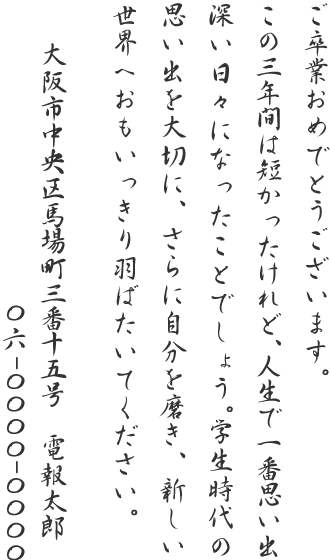 ご卒業おめでとうございます。
この三年間は短かったけれど、人生で一番思い出
深い日々になったことでしょう。学生時代の
思い出を大切に、さらに自分を磨き、新しい
世界へおもいっきり羽ばたいてください。
大阪市中央区馬場町三番十五号　電報太郎
〇六－〇〇〇〇－〇〇〇〇